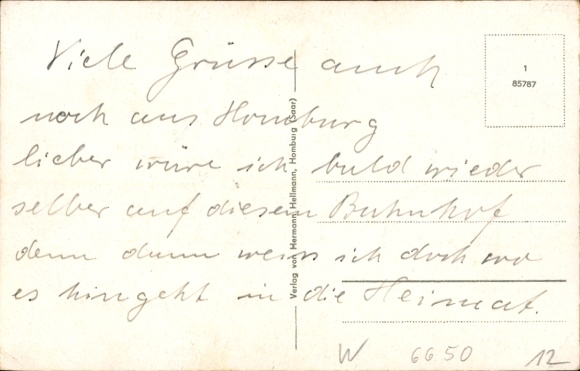 Viele Grüsse auch
noch aus Homburg
lieber wäre ich bald wieder
selber auf diesem Bahnhof
denn dann weiss ich doch wo
es hingeht in die Heimat.
Verlag von Hermann Hellmann, Homburg (Saar)
1
85787
W 6650 12